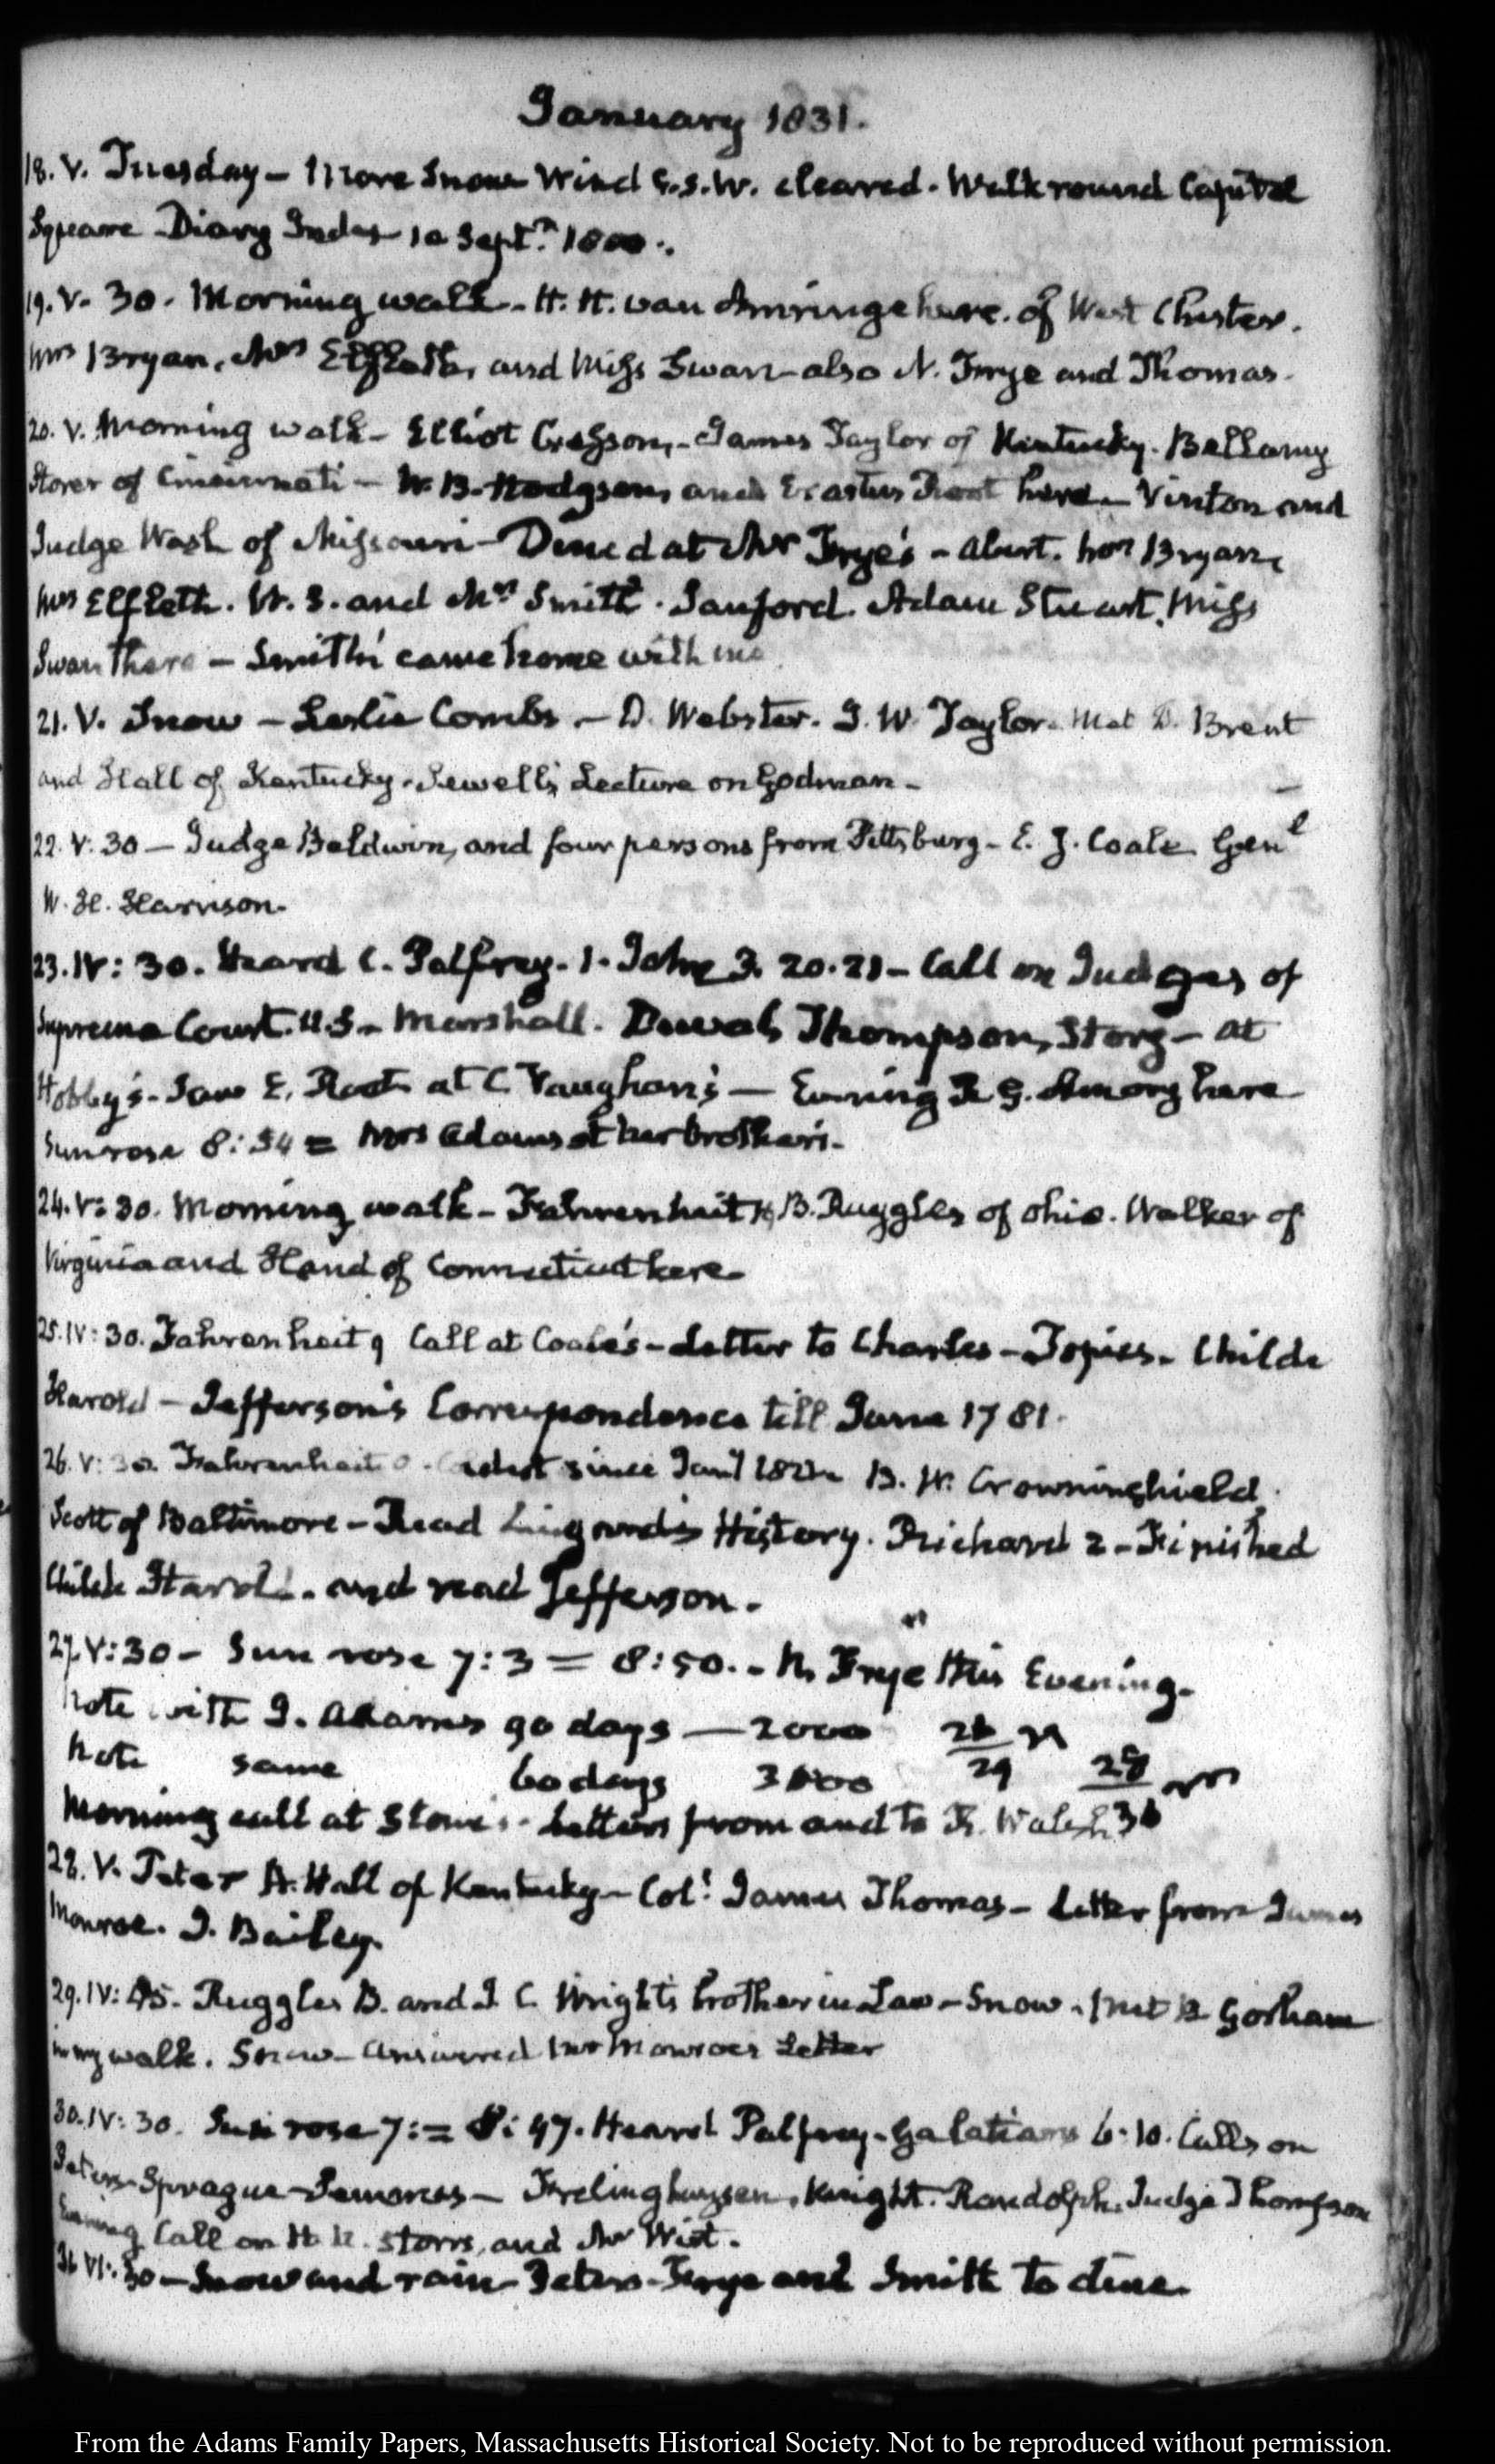 January 1831.
18. V. Tuesday – More Snow Wind S.S.W. cleared. Walk round Capitol
Square Diary Index 10 Septr. 1800.
19. V. 30. Morning walk – H. H. van Amringe here. of West Chester.
Mrs Bryan, Mrs Elfreth, and Miss Swan – also N. Frye and Thomas.
20. V. Morning walk – Elliot Cresson, – James Taylor of Kentucky. Bellamy
Storer of Cincinnati – W. B. Hodgson, and Erastus Root here – Vinton and
Judge Wash of Missouri – Dined at Mr Frye's – Bryan,
Mrs Elfreth. W. S. and Mrs Smith. Sanford. Adam Stewart. Miss
Swan there – Smith's came home with me.
21. V. Snow – Leslie Combs. – D. Webster. J. W. Taylor. Met D. Brent
and Hall of Kentucky. Sewell's Lecture on Godman –
22. V. 30 – Judge Baldwin, and four persons from Pittsburg – E. J. Coale Genl
W. H. Harrison.
23. IV: 30. Heard C. Palfrey. 1. John 3. 20. 21 – Call on Judges of
Supreme Court. U.S. – Marshall. Duval, Thompson, Story – at
Saw E. Root at C Vaughan's – Evening here
Sun rose 8:54 = Mrs Adams at her brother's.
24. V: 30. Morning walk – Fahrenheit B. Ruggles of Ohio. Walker of
Virginia and Hand of Connecticut here –
25. IV: 30. Fahrenheit 9 Call at Coale's – Letter to Charles – Topics – Childe
Harold – Jefferson's Correspondence till June 1781.
26. V: 30. Fahrenheit 0. Coldest since Jany B. W. Crowninshield,
Scott of Baltimore – Read Lingard's History. Richard 2 – Finished
Childe Harold. and read Jefferson.
27. V: 30 – Sun rose 7:3 = 8:50. – N. Frye this Evening.
Note with J. Adams 90 days — 2000 26/29
Note same 60 days 3000 28/30
Morning call at Stone's. Letters from and to R. Walsh
28. V. Peter A. Hall of Kentucky – Coll. James Thomas – Letter from James
Monroe. J. Bailey.
29. IV: 45. Ruggles B. and J. C. Wright's brother in Law – Snow. Met B Gorham
in my walk. Snow – Answered Mr Monroe's Letter
30. IV: 30. Sun rose 7: = 8: 47. Heard Palfrey – Galatians 6. 10. Calls on
Peters – Sprague – Frelinghuysen, Knight. Randolph. Judge Thompson
Evening Call on H. R. Storrs, and Mr Wirt.
31. VI: 30 – Snow and rain – Peters – Frye and Smith to dine.
From the Adams Family Papers, Massachusetts Historical Society. Not to be reproduced without permission.